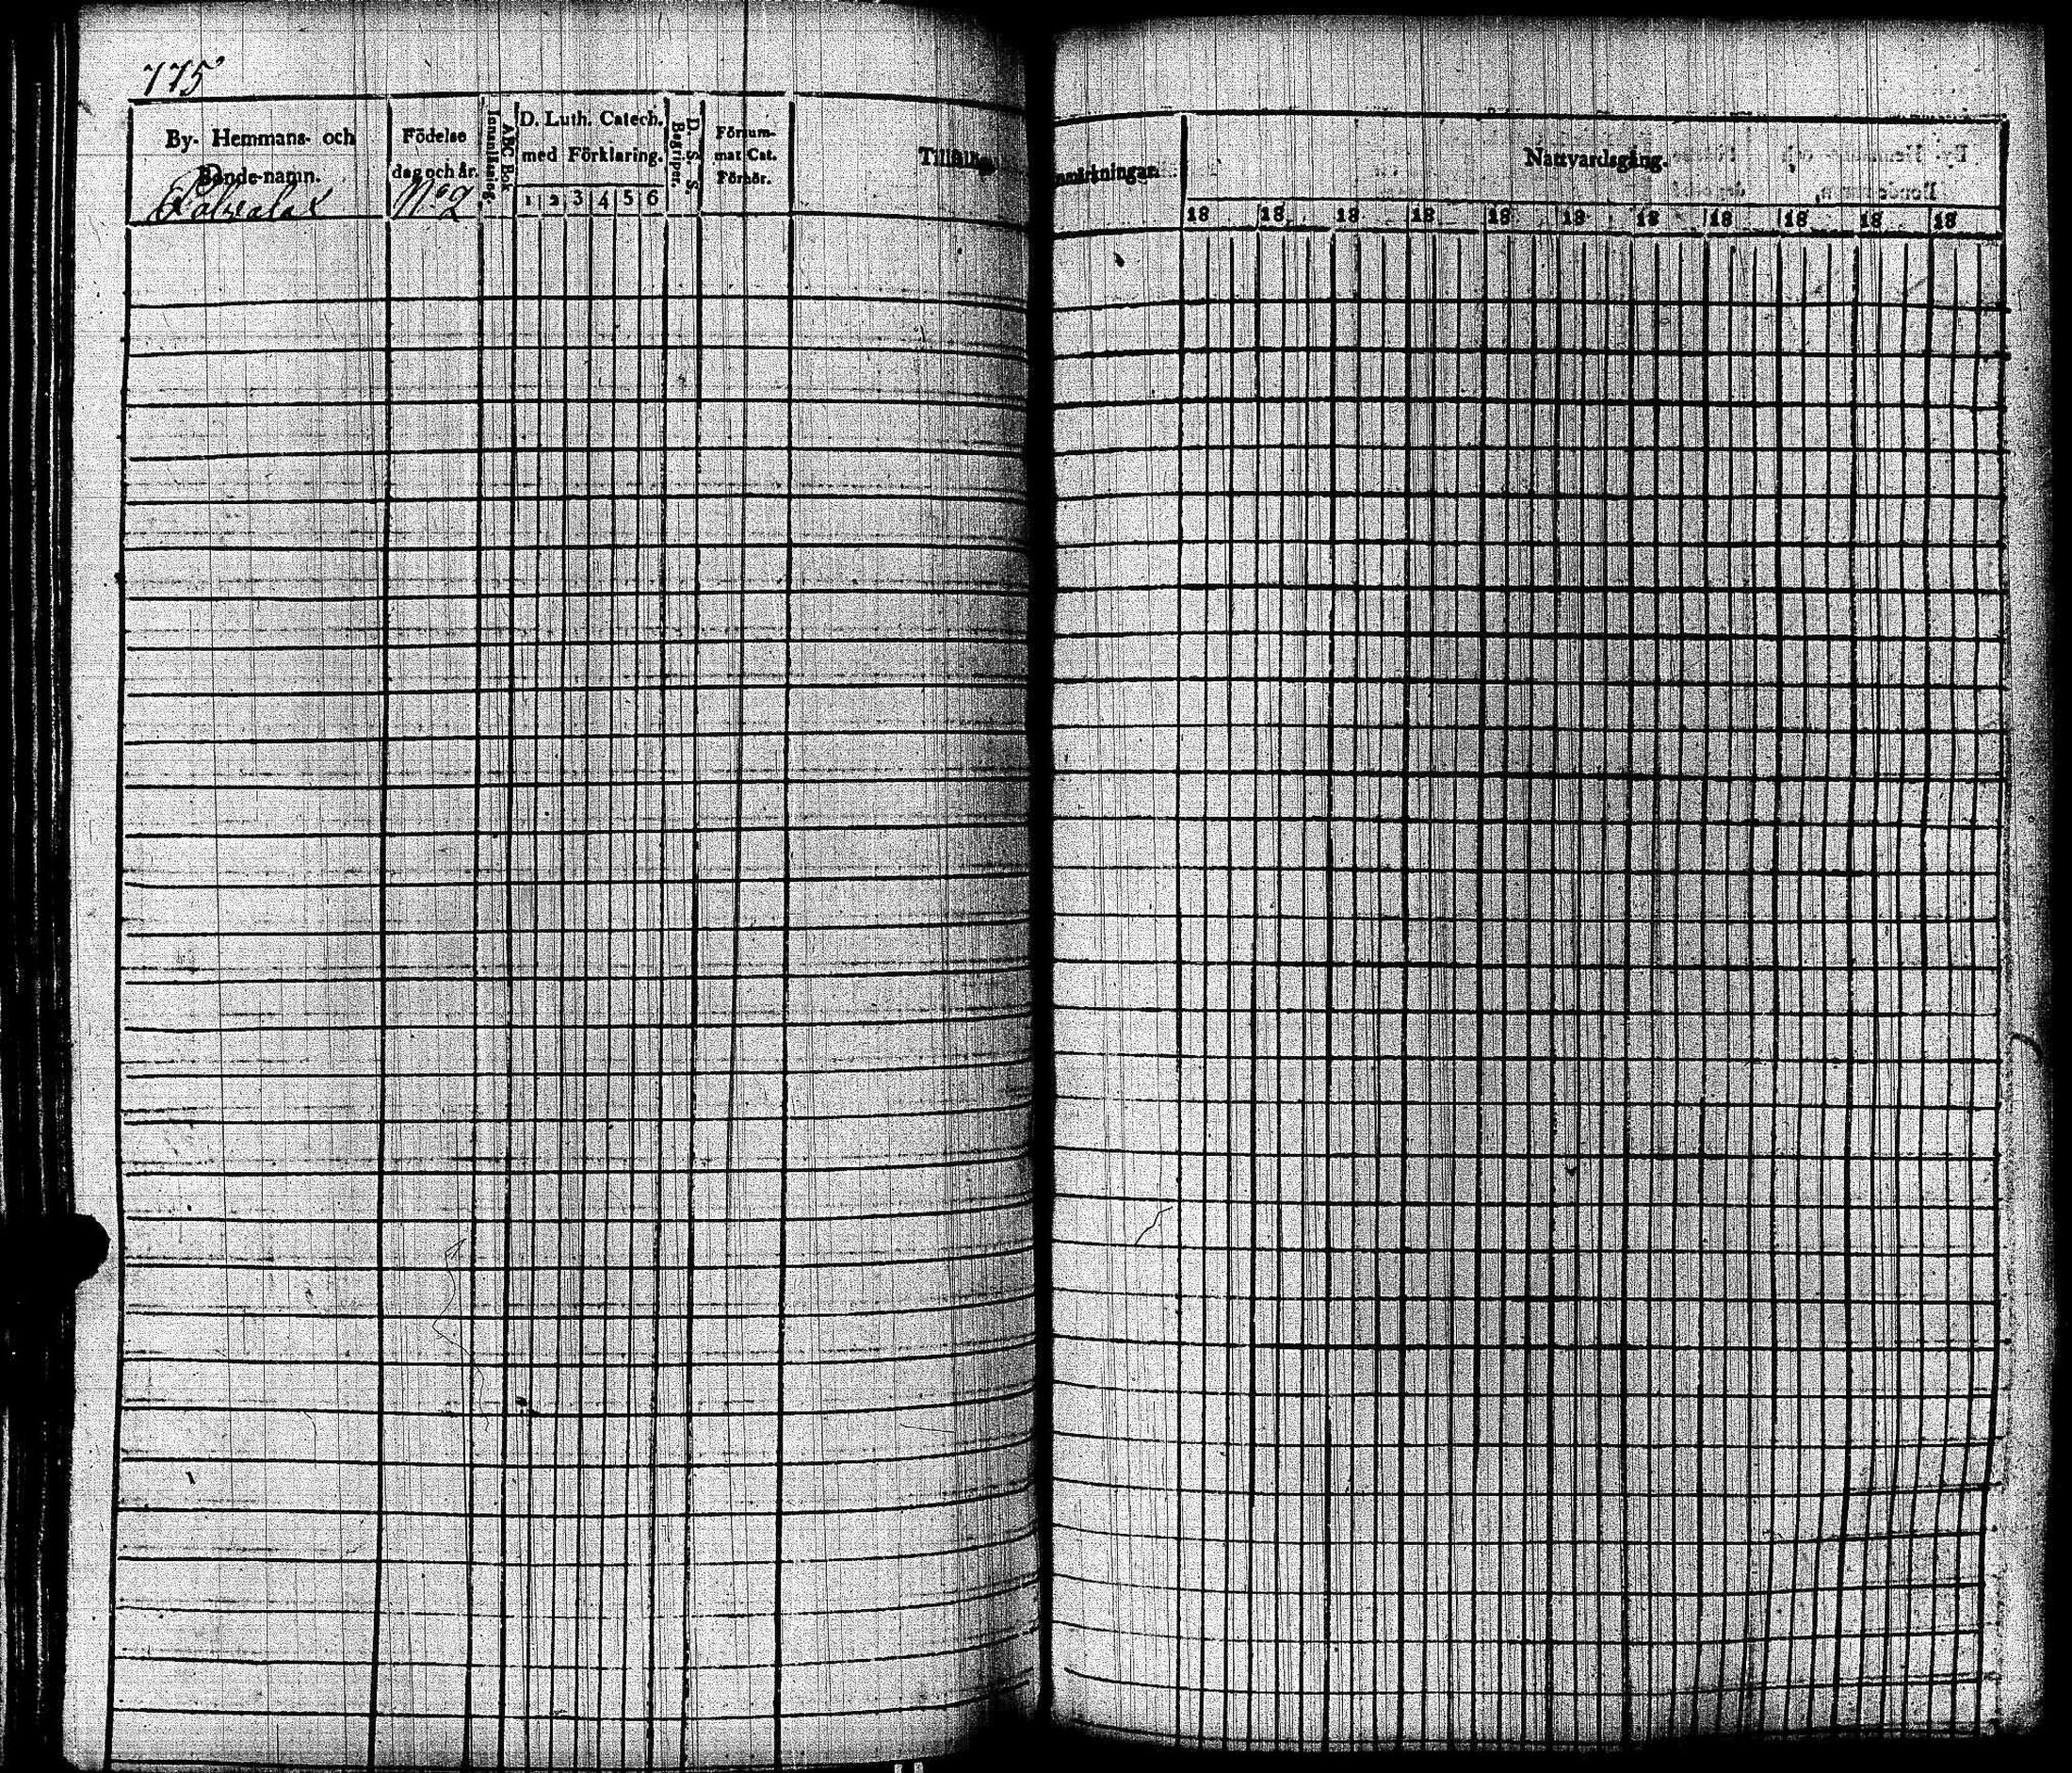 775
By- Hemmans- och
Bonde-namn.
Födelse
dag och år.
No 2
ABC Bok
Innanläsning.
D. Luth. Catech.
med Förklaring.
1 2 3 4 5 6
D. S. S.
Begriper.
Försum-
mat Cat.
Förhör.
Nattvardsgång.
18 18 18 18 18 18 18 18 18 18 18